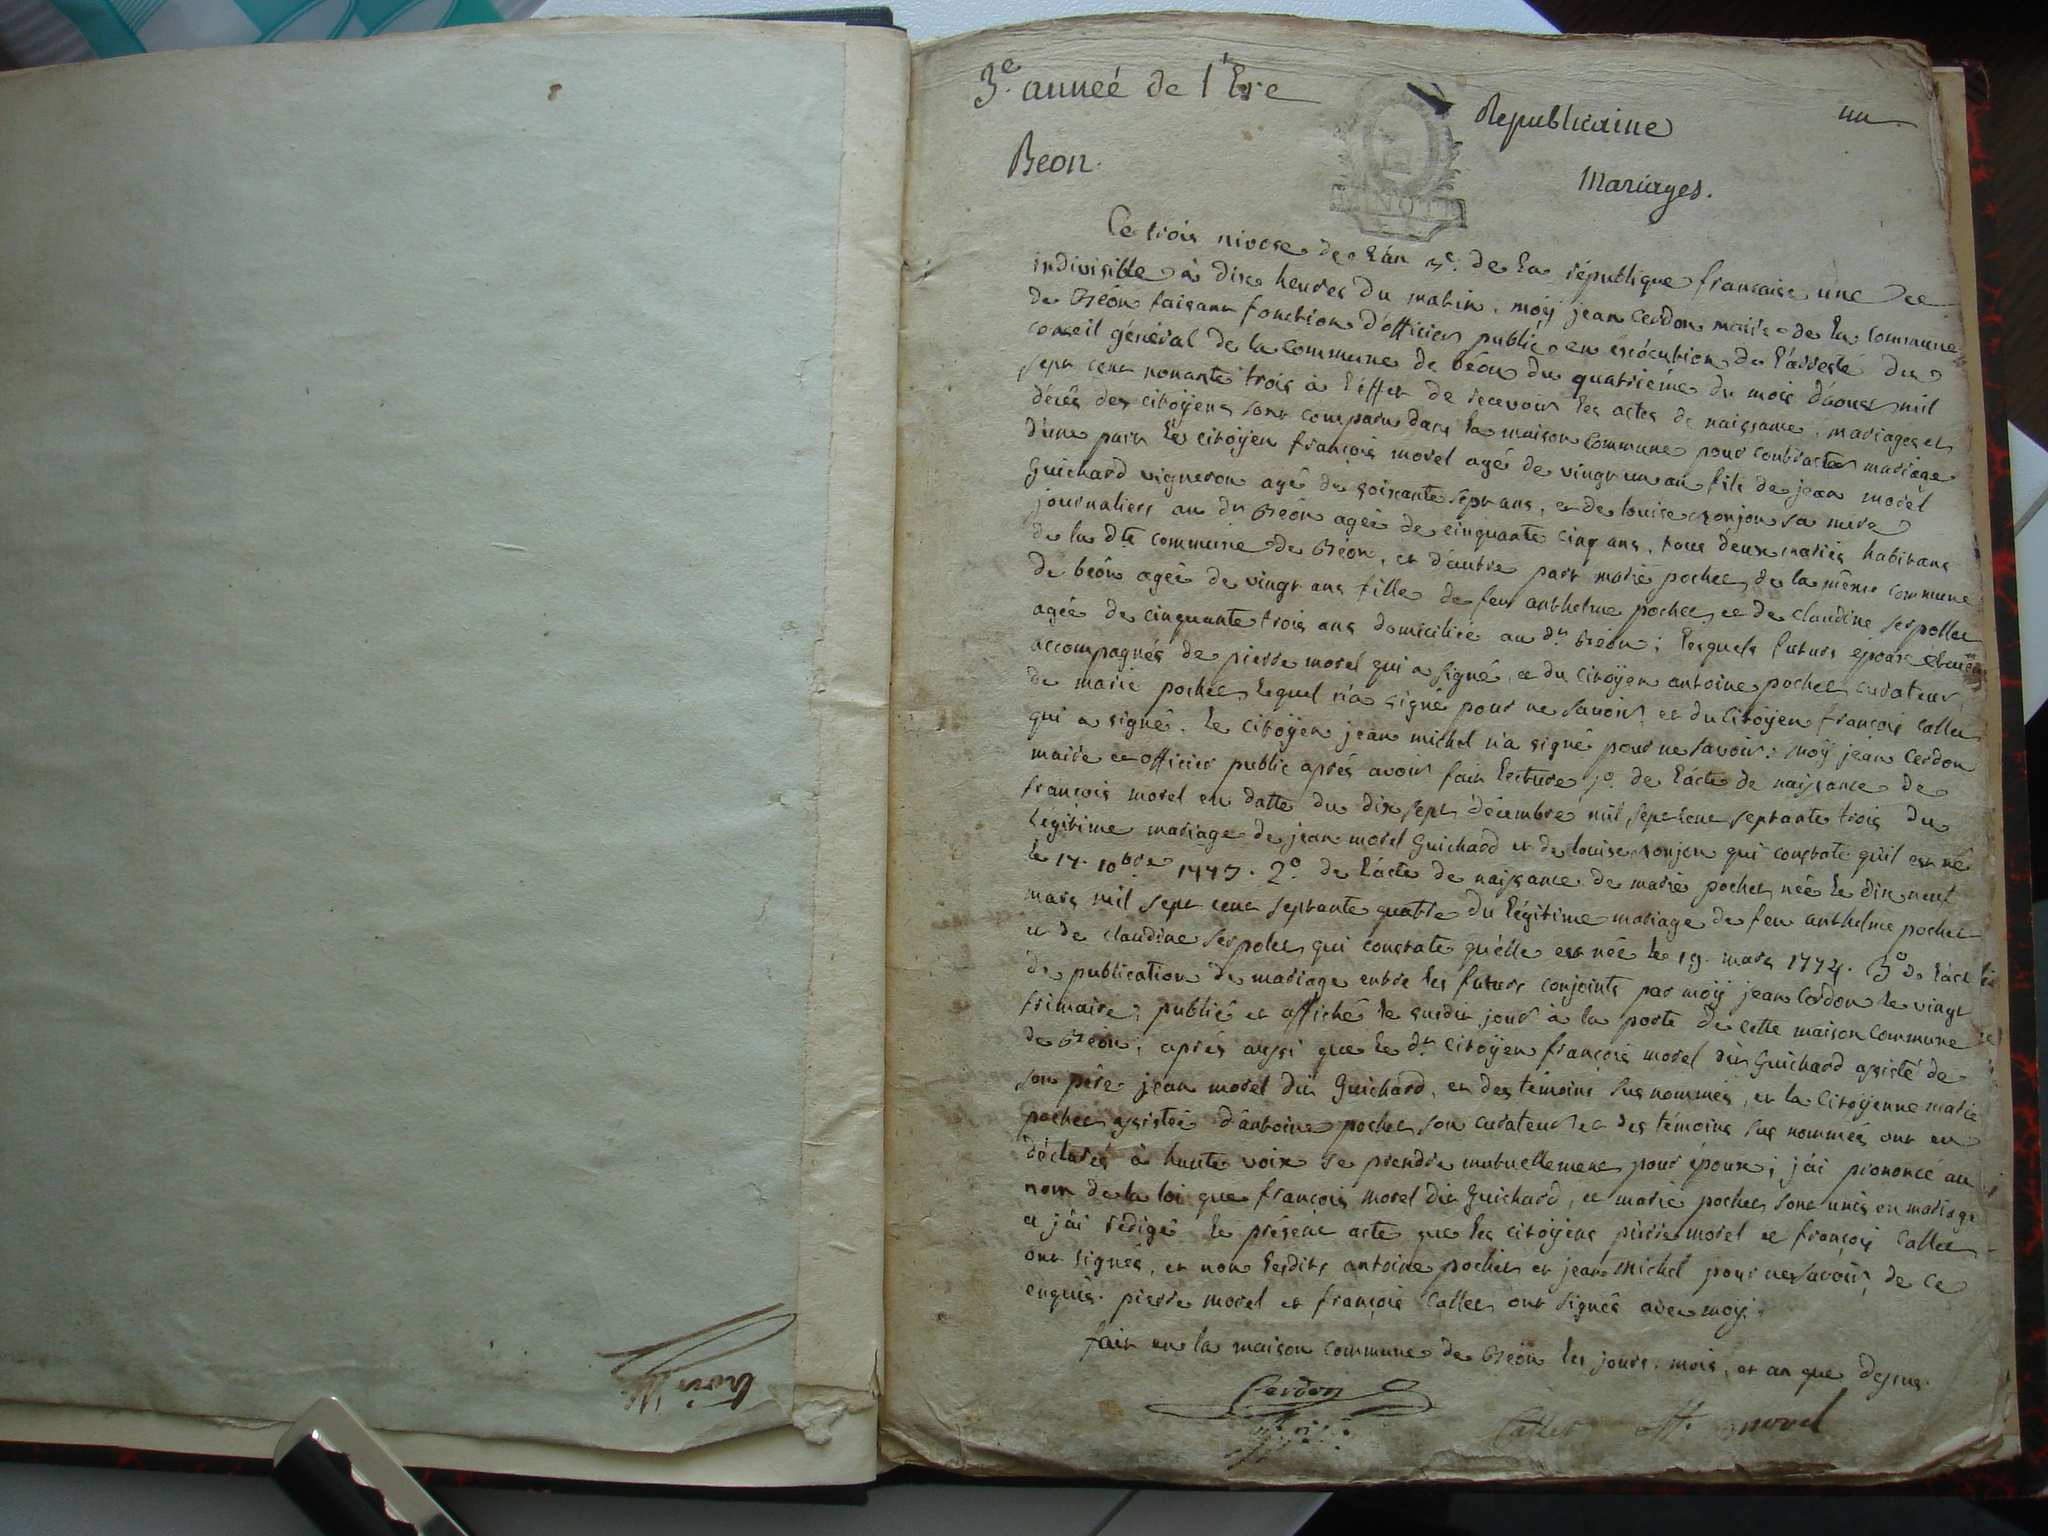 3e. anneé de l'Ere
Republicaine
un
Beon.
Mariages.
Ce trois nivose de l'an 3e. de la république francaise une et
indivisible à dix heures du matin, moÿ jean Cerdon maire de la commune
de Béon faisant fonction d'officier public, en éxécution de l'arresté du
conseil général de la commune de béon du quatriéme du mois d'aoust mil
sept cent nonante trois à l'éffet de recevoir les actes de naissance, mariages et
décès des citoÿens sont comparu dans la maison commune pour contracter mariage
d'une part le citoÿen françois morel agé de vingt un an fils de jean morel
Guichard vigneron agé de soixante sept ans, et de louise sonjon sa mere
journaliers au dt Béon agée de cinquante cinq ans, tous deux mariés habitans
de la dte commune de Béon, et d'autre part marie pochet de la même commune
de béon agée de vingt ans fille de feu anthelme pochet et de claudine serpollet
agée de cinquante trois ans domiciliée au dt Béon; lesquels futurs epoux étaient
accompagnés de pierre morel qui a signé, et du citoÿen antoine pochet curateur
de marie pochet lequel n'a signé pour ne savoir, et du citoÿen françois Callet
qui a signé. le citoÿen jean michel n'a signé pour ne savoir: moÿ jean Cerdon
maire et officier public après avoir fait lecture 1o. de l'acte de naissance de
françois morel en datte du dix sept décembre mil sept cent septante trois du
légitime mariage de jean morel Guichard et de louise sonjon qui constate qu'il est né
le 17. 10bre 1773. 2o. de l'acte de naissance de marie pochet née le dix neuf
mars mil sept cent septante quatre du légitime mariage de feu anthelme pochet
et de claudine serpolet qui constate qu'elle est née le 19. mars 1774. 3o de l'acte
de publication de mariage entre les futurs conjoints par moÿ jean Cerdon le vingt
frimaire, publié et affiché le susdit jour à la porte de cette maison commune
de Béon, après aussi que le dt. citoÿen françois morel dit Guichard assisté de
son père jean morel dit Guichard, et des témoins sus nommés, et la citoÿenne marie
pochet assistée d'antoine pochet son curateur et des témoins sus nommés ont eu
déclarés à haute voix se prendre mutuellement pour époux; j'ai prononcé au
nom de la loi que françois morel dit Guichard, et marie pochet sont unis en mariage
et j'ai rédigé le présent acte que les citoÿens pierre morel et françois Callet
ont signés, et non lesdits antoine pochet et jean michel pour ne savoir, de ce
enquis. pierre morel et françois Callet ont signés avec moÿ.
fait en la maison commune de Béon les jours, mois, et an que dessus.
Cerdon
Callet
morel
trois